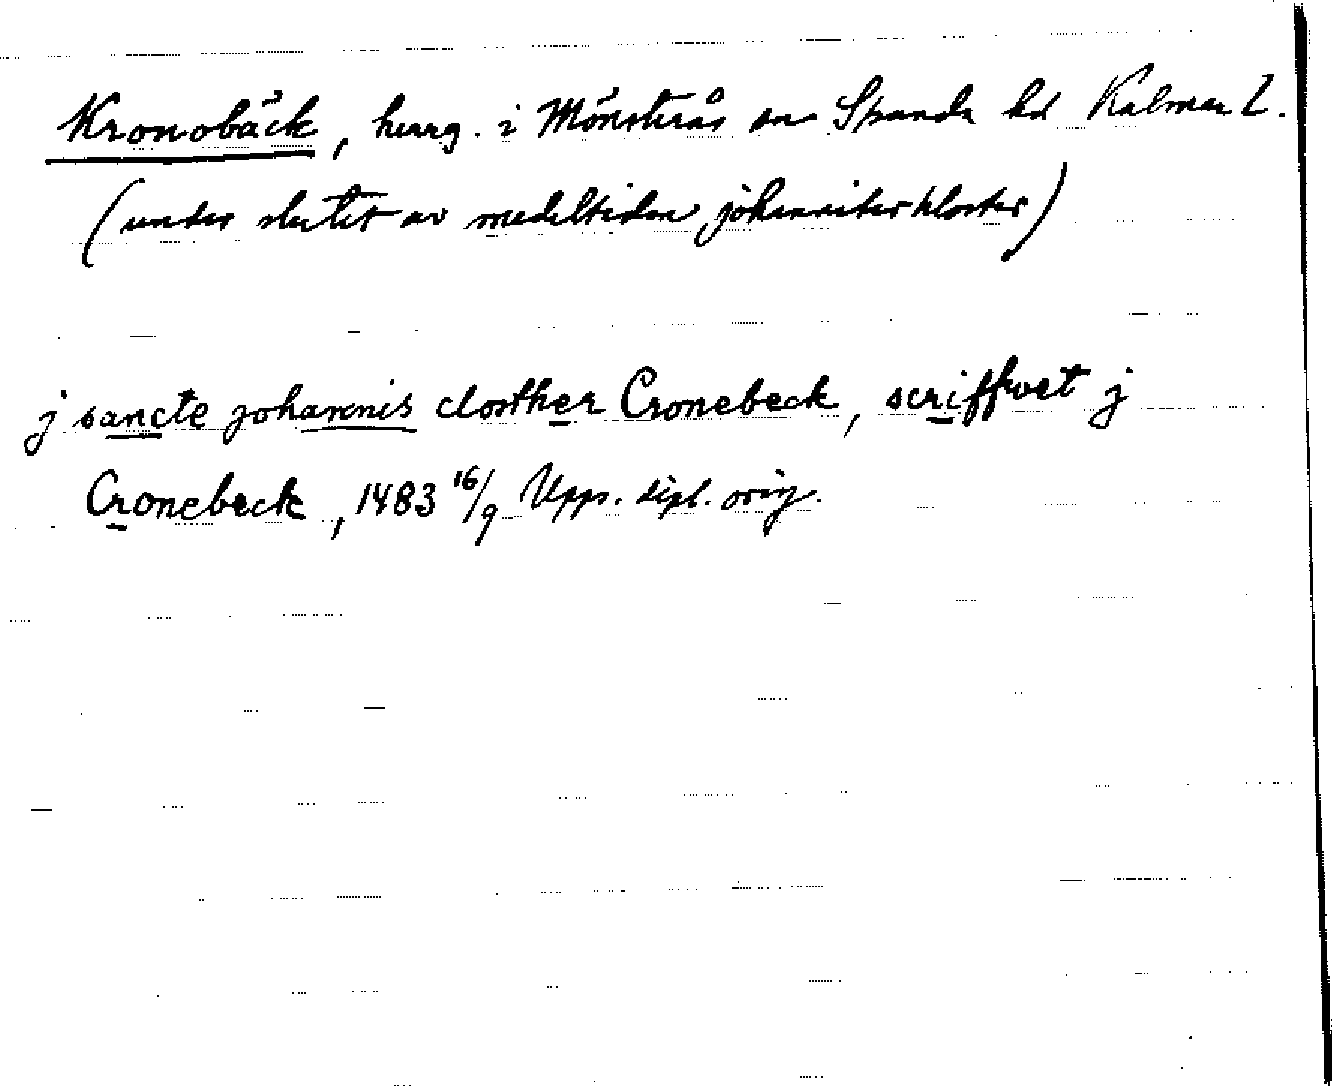 Kronobäck, herrg. i Mönsterås sn Stranda hd Kalmar l.
(under slutet av medeltiden johanniterkloster)
j sancte johannis closther Cronebeck, scriffwet j
Cronebeck, 1483 16/9 Upps. dipl. orig.